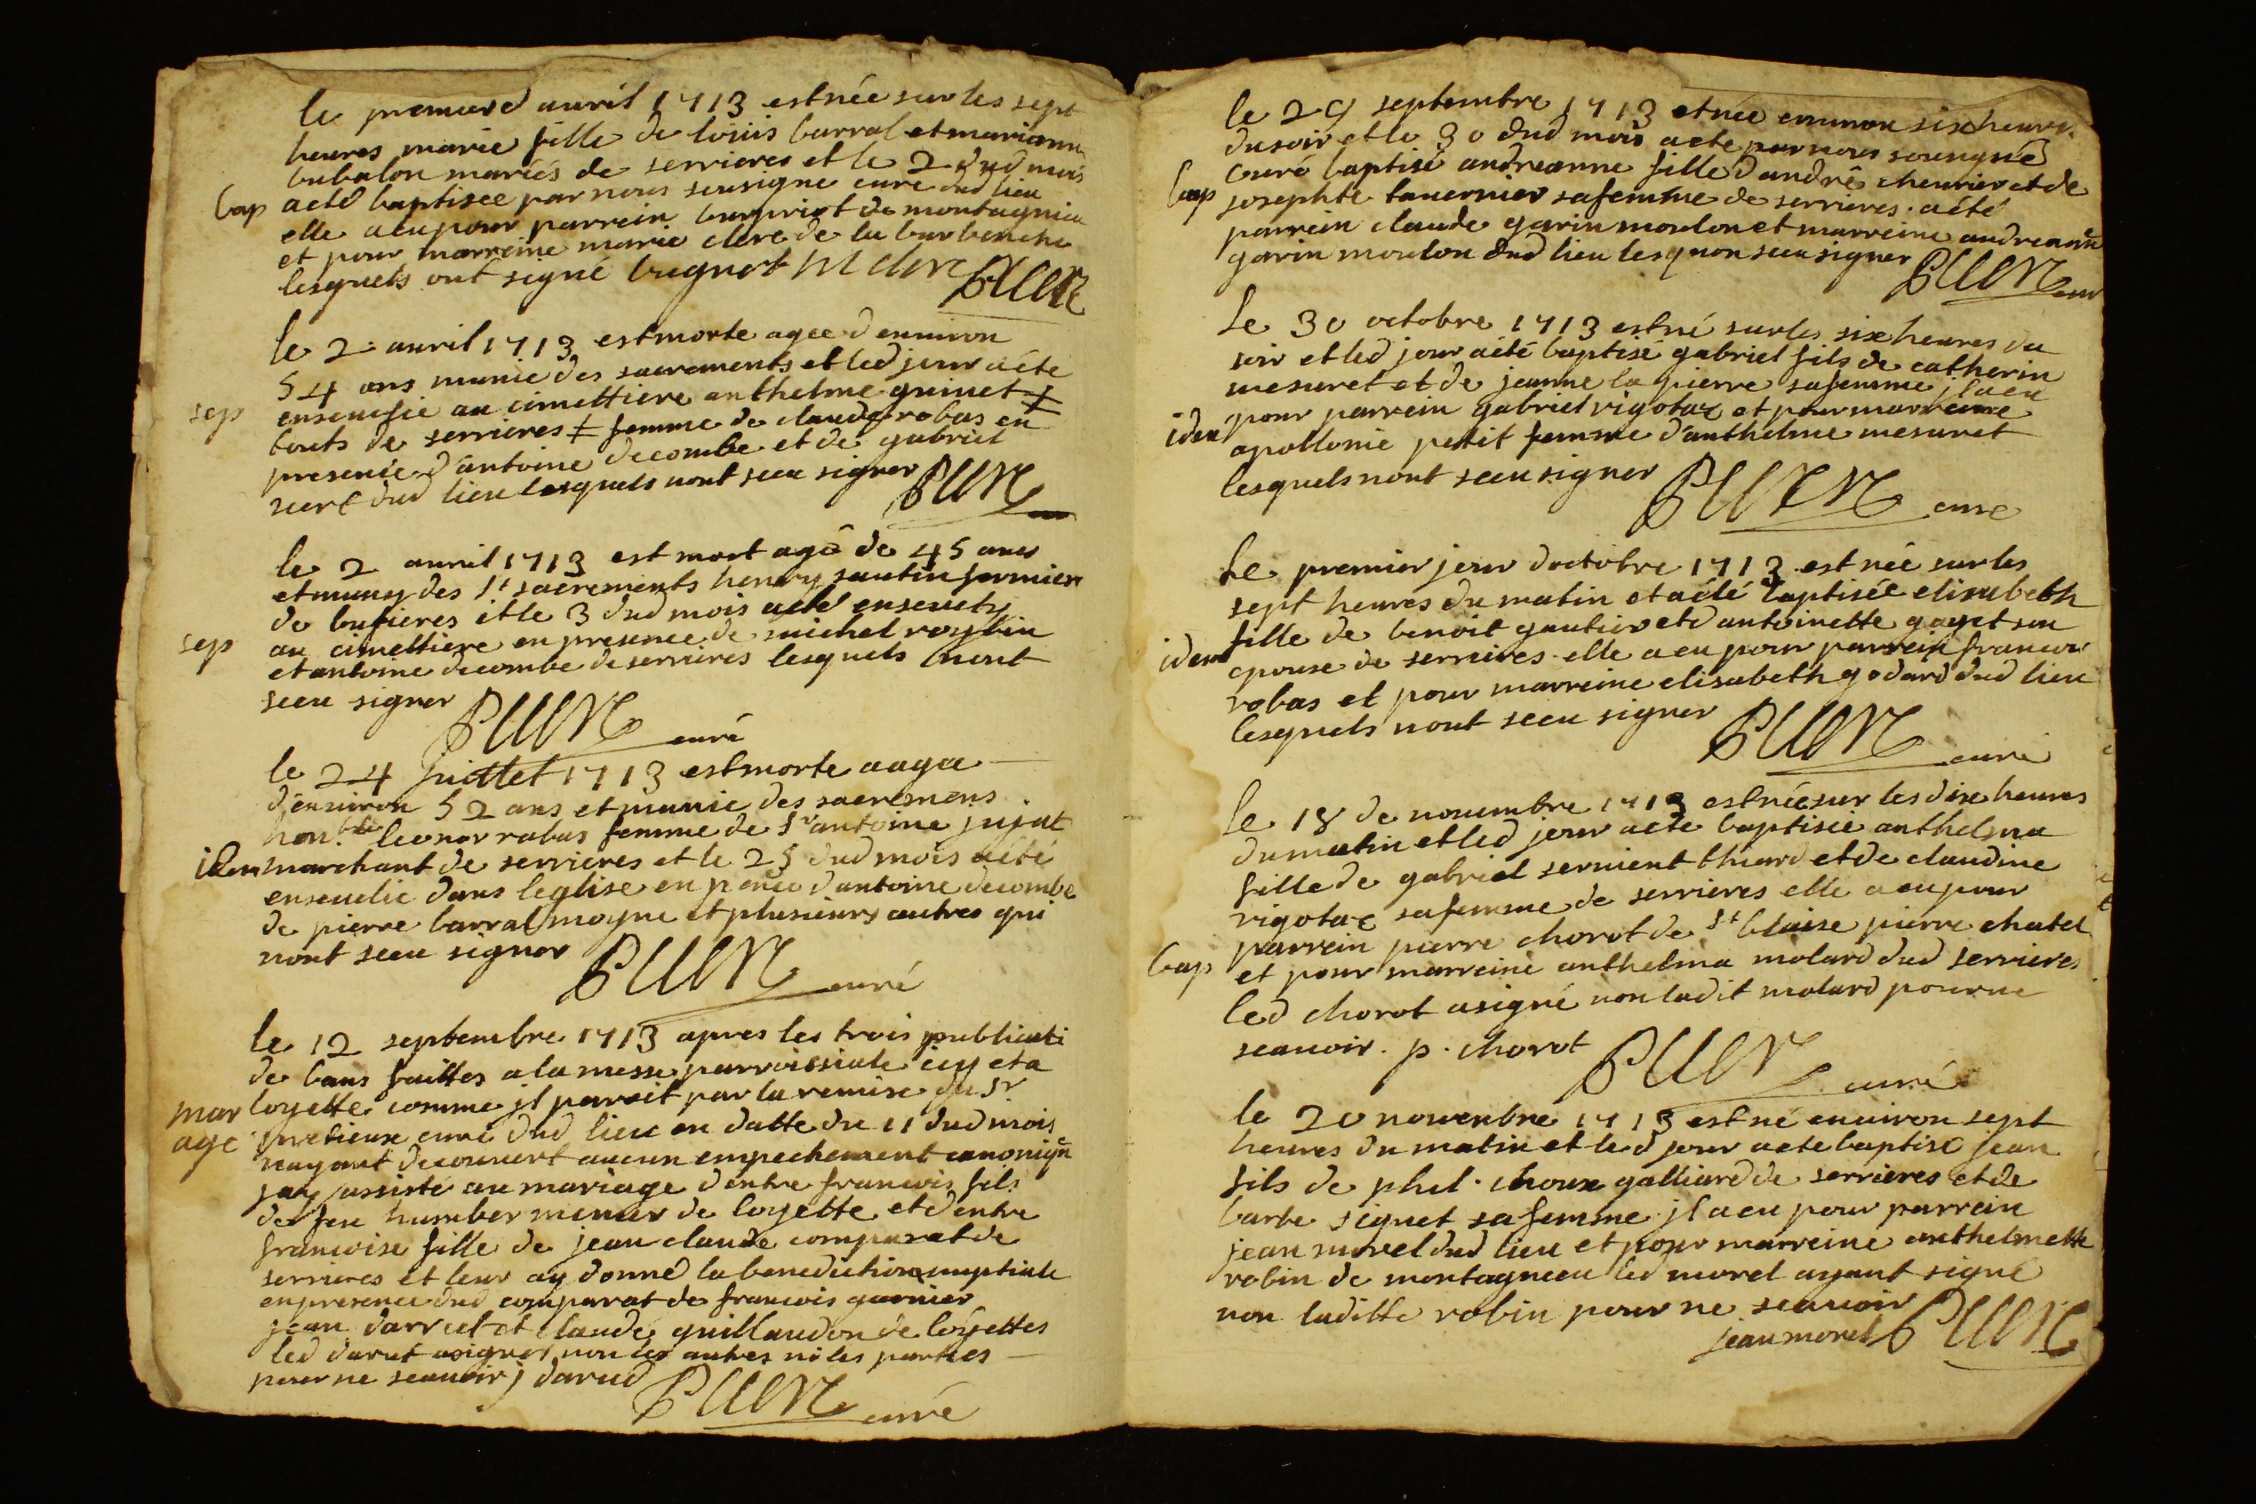 le premier d auril 1713 est née sur les sept
heures marie fille de loüis barral et marianne
bubalon mariés de serrieres et le 2 dud mois
bap a eté baptisee par nous sousigne curé dud lieu
elle a eu pour parrein bugniot de montagnieu
et pour marreine marie clerc de la barbenche
lesquels ont signé bugnot M clerc
le 2 auril 1713 est morte agee d enuiron
54 ans munie des sacrements et led jour a été
sep enseuelie au cimettiere anthelme guinet ‡
touts de serrieres ‡ femme de claude robas en
presence d'antoine decombe et de gabriel
dud lieu lesquels nont sceu signer
le 2 auril 1713 est mort agé de 45 ans
et muny des st sacrements henry sautin fermier
de bufieres et le 3 dud mois a eté enseuely
sep au cimettiere en presence de michel roybin
et antoine decombe de serrieres lesquels nont
sceu signer curé
le 24 juillet 1713 est morte aagee
d'enuiron 52 ans et munie des sacremens
honble leonor robas femme de Sr antoine jujat
idem marchant de serrieres et le 25 dud mois a été
enseuelie dans leglise en pnce d'antoine decombe
de pierre barral moyne et plusieurs autres qui
nont sceu signer curé
le 12 septembre 1713 apres les trois publicati
de bans faittes a la messe parroissiale icy et a
mar loyette comme jl paroit par la remise du Sr
age curé dud lieu en datte du 11 dud mois
nayant decouuert aucun empechement canoniqu
jay assisté au mariage d entre francois fils
de feu humber de loyette et d entre
francoise fille de jean claude comparat de
serrieres et leur ay donné la benediction nuptiale
en presence dud comparat de francois garnier
jean darrud et claude guillaudon de loyettes
led darut a signé non les autres ni les parties
pour ne scauoir j darud curé
le 29 septembre 1713 et née enuiron six heures
du soir et le 30 dud mois a eté par nous sousigné
curé baptisé andreanne fille d andré cheurier et de
bap josephte tauernier sa femme de serrieres. a été
parrein claude garin moulon et marreine andreanne
garin moulon dud lieu lesq non sceu signer cur
Le 30 octobre 1713 est né sur les six heures du
soir et led jour a été baptisé gabriel fils de catherin
mesuret et de jeanne la pierre sa femme jl a eu
idem pour parrein gabriel rigotaz et pour marreine
apollonie petit femme d'anthelme mesuret
lesquels nont sceu signer cure
Le premier jour doctobre 1713 est née sur les
sept heures du matin et a été baptisée elisabeth
fille de benoit gautier et d antoinette gayet son
idem epouse de serrieres. elle a eu pour parrein francois
robas et pour marreine elisabeth godard dud lieu
lesquels nont sceu signer curé
Le 18 de nouembre 1713 est née sur les dix heures
du matin et led jour a eté baptisée anthelma
fille de gabriel seruient thiard et de claudine
rigotaz sa femme de serrieres elle a eu pour
parrein pierre chorot de st blaise pierre chatel
bap et pour marreine anthelma molard dud serrieres
led chorot a signé non ladit molard pour ne
scauoir. p. chorot curé
le 20 nouembre 1713 est né enuiron sept
heures du matin et led jour a eté baptisé jean
fils de phil. choux galliard de serrieres et de
barbe siguet sa femme. jl a eu pour parrein
jean morel dud lieu et pour marreine anthelmette
robin de montagneu led morel ayant signé
non laditte robin pour ne scauoir
jean morel